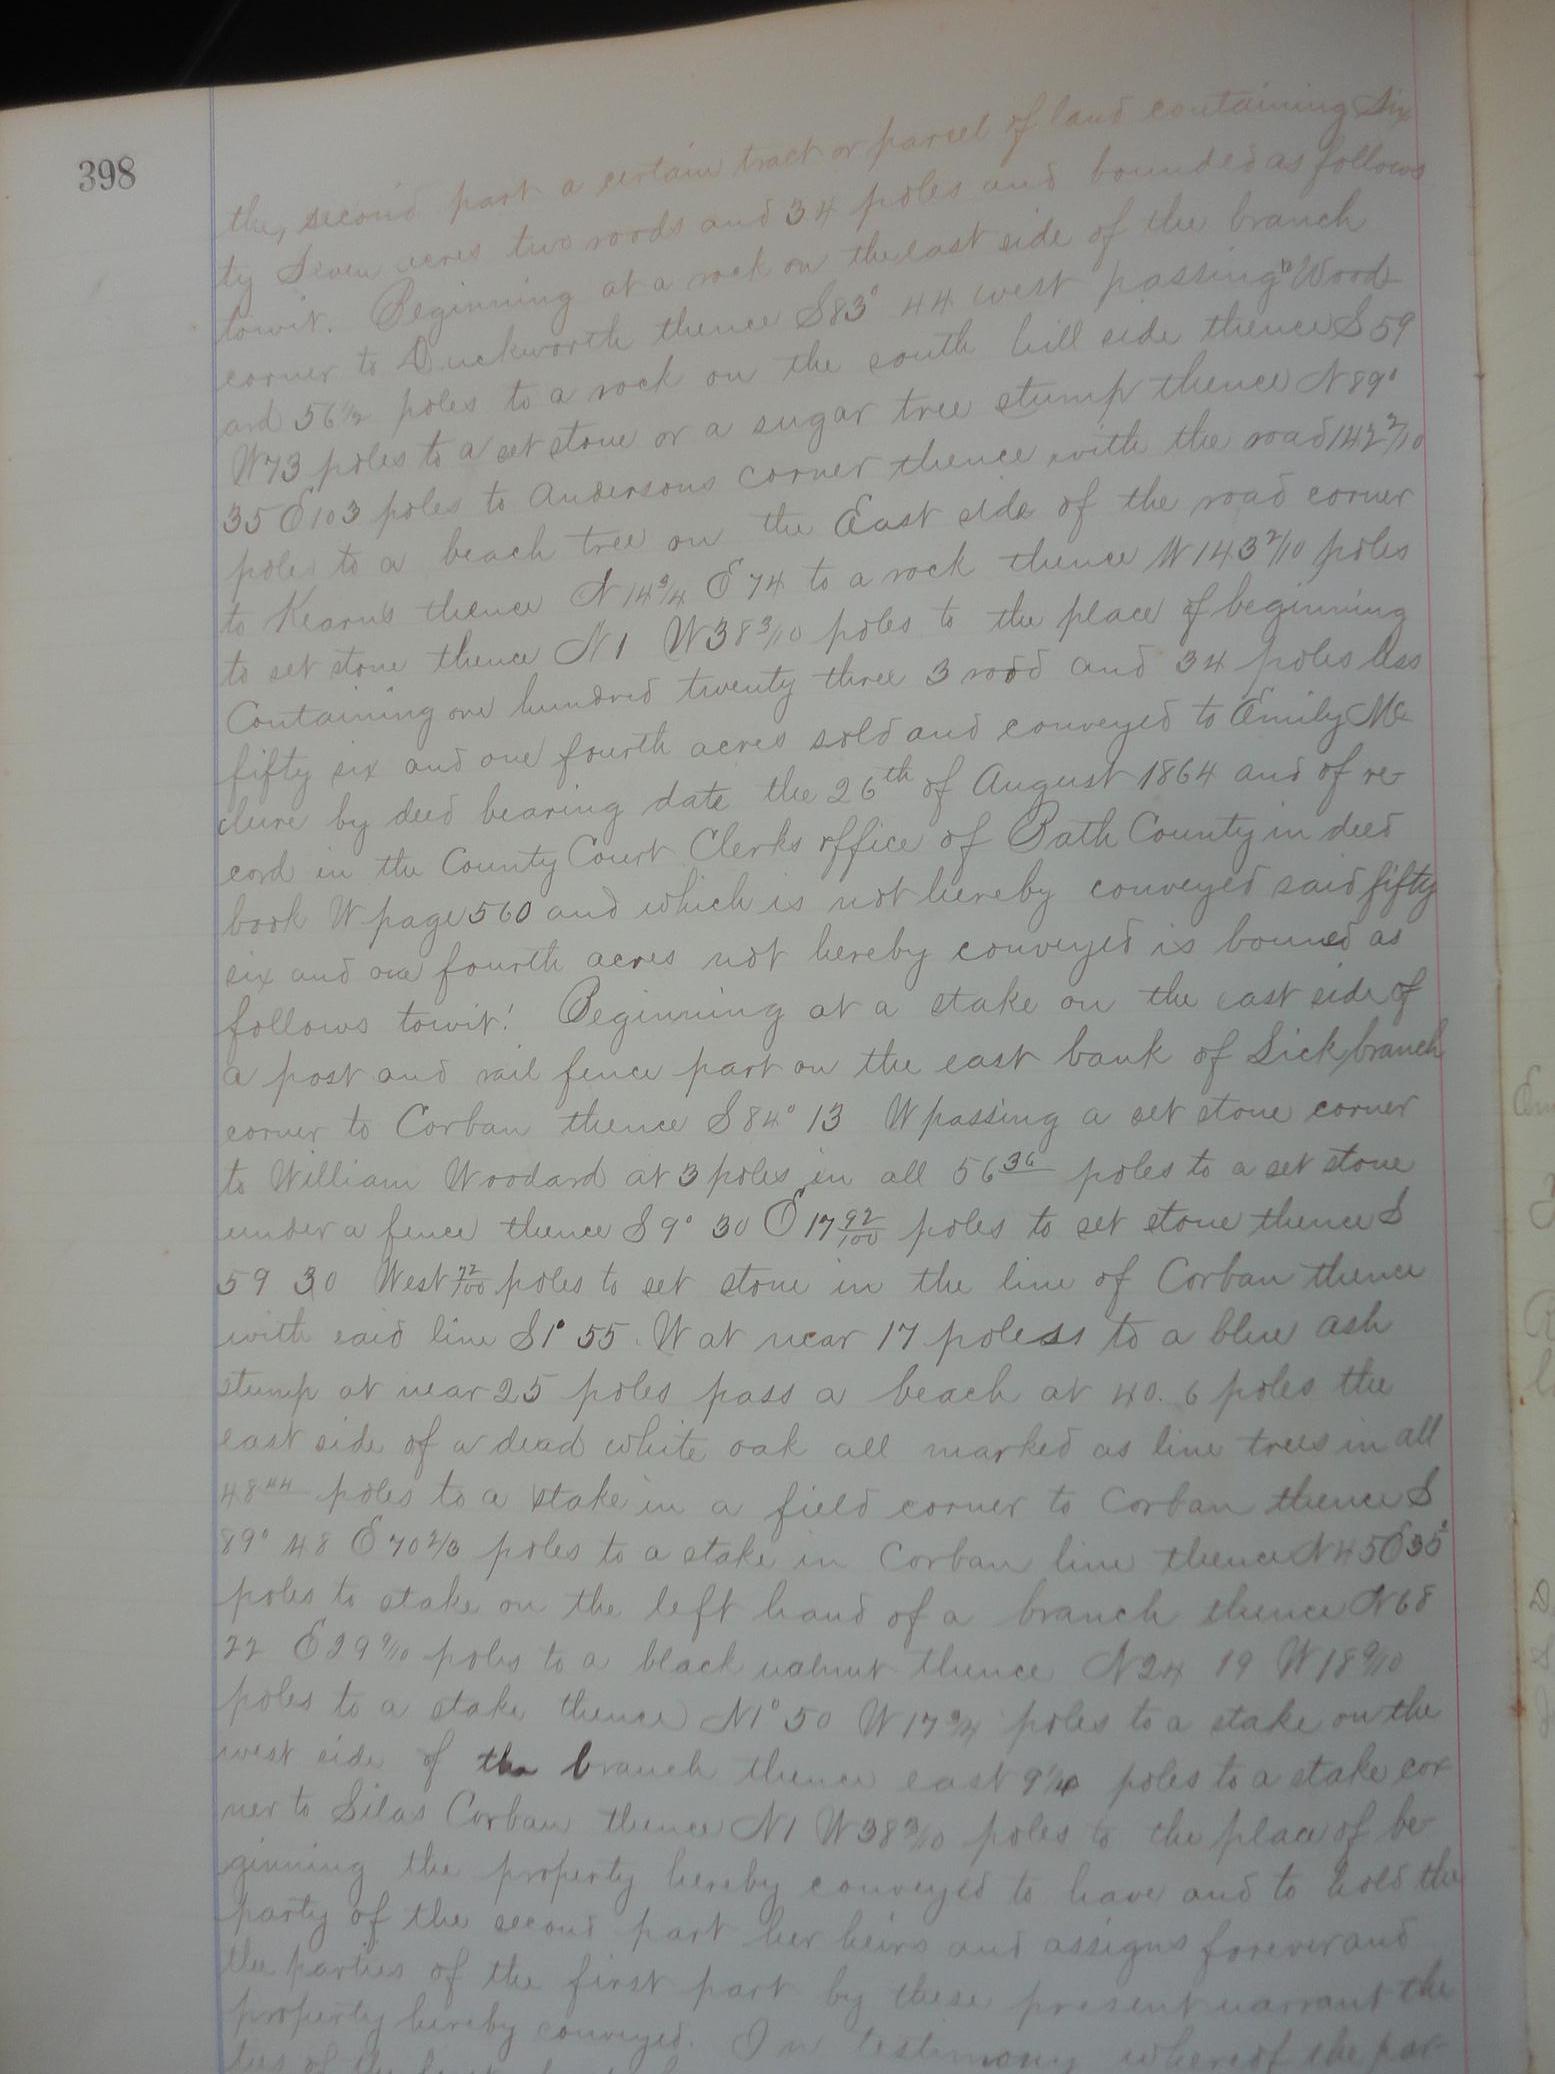 398
the, second part a certain tract or parcel of land containing Six
ty Seven acres two roods and 34 poles and bounded as follows
towit. Beginning at a rock on the east side of the branch
corner to Duckworth thence S83° 44 west passing Wood
ard 56 1/2 poles to a rock on the south hill side thence S 59
W73 poles to a set stone or a sugar tree stump thence N 89°
35 E 103 poles to Andersons corner thence with the road 142 2/10
poles to a beach tree on the East side of the road corner
to Kearns thence N 14 3/4 E 74 to a rock thence W 143 2/10 poles
to set stone thence N 1 W38 3/10 poles to the place of beginning
Containing one hundred twenty three 3 rood and 34 poles less
fifty six and one fourth acres sold and conveyed to Emily Mc
clure by deed bearing date the 26th of August 1864 and of re-
cord in the County Court Clerks office of Bath County in deed
book W page 560 and which is not hereby conveyed said fifty
six and one fourth acres not hereby conveyed is bouned as
follows towit: Beginning at a stake on the east side of
a post and rail fence part on the east bank of Lick branch
corner to Corban thence S 84° 13 W passing a set stone corner
to William Woodard at 3 poles in all 56 36 poles to a set stone
under a fence thence S 9° 30 E 17 92/100 poles to set stone thence S
59 30 West 72/100 poles to set stone in the line of Corban thence
with said line S 1° 55 W at near 17 poless to a blue ash
stump at near 25 poles pass a beach at 40. 6 poles the
east side of a dead white oak all marked as line trees in all
48 44 poles to a stake in a field corner to Corban thence S
89° 48 E 70 2/3 poles to a stake in Corban line thence N 45 E 35
poles to stake on the left hand of a branch thence N 68
22 E 29 9/10 poles to a black walnut thence N 24 19 W 18 9/10
poles to a stake thence N 1° 50 W 17 3/4 poles to a stake on the
west side of the branch thence east 9 1/4 poles to a stake cor
ner to Silas Corban thence N 1 W 38 3/10 poles to the place of be-
ginning the property hereby conveyed to have and to hold the
party of the second part her heirs and assigns forever and
the parties of the first part by these present warrant the
property hereby conveyed. In testimony whereof the par-
ties of the first